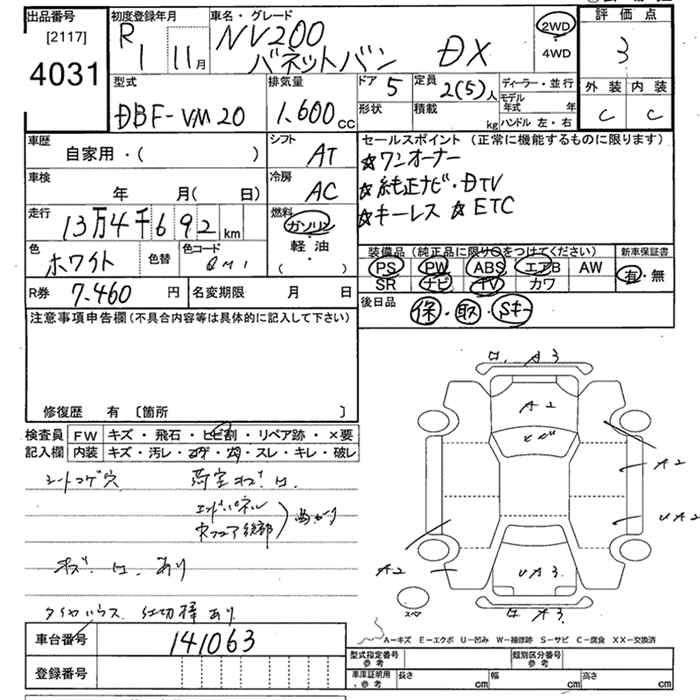 出品番号
[2117]
4031
初度登録年月
R1 11月
車名・グレード
NV200
バネットバン DX
2WD
4WD
評価点
3
外装 内装
C C
型式
DBF-VM20
排気量
1.600cc
ドア 5
定員 2(5)人
ディーラー・並行
モデル年式 年
形状
積載 kg
ハンドル 左・右
車歴
自家用・( )
シフト
AT
セールスポイント (正常に機能するものに限ります)
☆ワンオーナー
☆純正ナビ・DTV
☆キーレス ☆ETC
車検
年 月( 日)
冷房
AC
走行
13万4千692km
燃料
ガソリン
軽油
( ・ )
色
ホワイト
色替
色コード
QM1
装備品 (純正品に限り○をつけてください)
PS PW ABS エアB AW
SR ナビ TV カワ
新車保証書
有・無
R券 7.460円
名変期限 月 日
後日品
保・取・Sキー
注意事項申告欄(不具合内容等は具体的に記入して下さい)
修復歴 有 〔箇所 〕
検査員記入欄
FW キズ・飛石・ヒビ割・リペア跡・×要
内装 キズ・汚レ・コゲ・穴・スレ・キレ・破レ
シートコゲ穴
荷室キズ.凹.
エンドパネル
キズ.凹.あり
タイヤハウス 仕切棒あり
車台番号 141063
登録番号
凹.A3
A2
ヒビ
A2
UA2
A2
UA3
スペ
凹.A3
A-キズ E-エクボ U-凹み W-補修跡 S-サビ C-腐食 XX-交換済
型式指定番号 参考
類別区分番号 参考
車庫証明用 参考
長さ cm
幅 cm
高さ cm